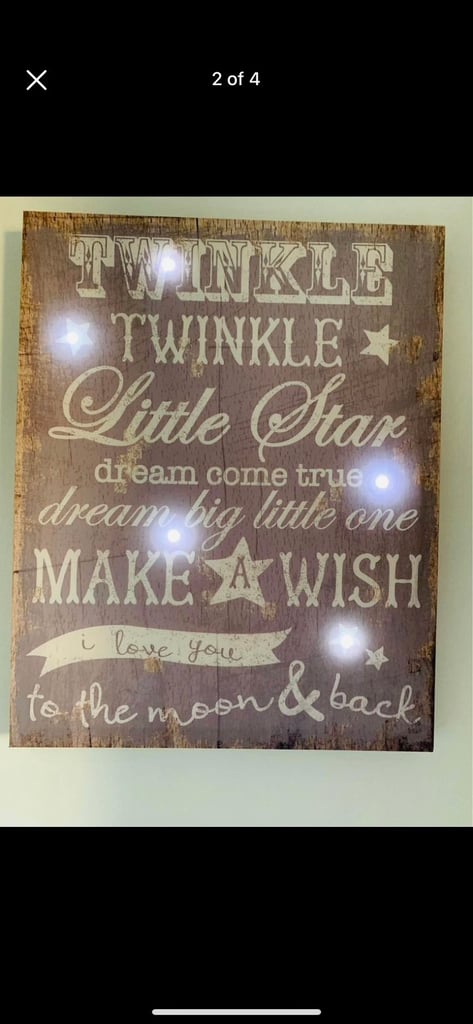 2 of 4
TWINKLE
TWINKLE
Little Star
dream come true
dream big little one
MAKE A WISH
i love you
to the moon & back.